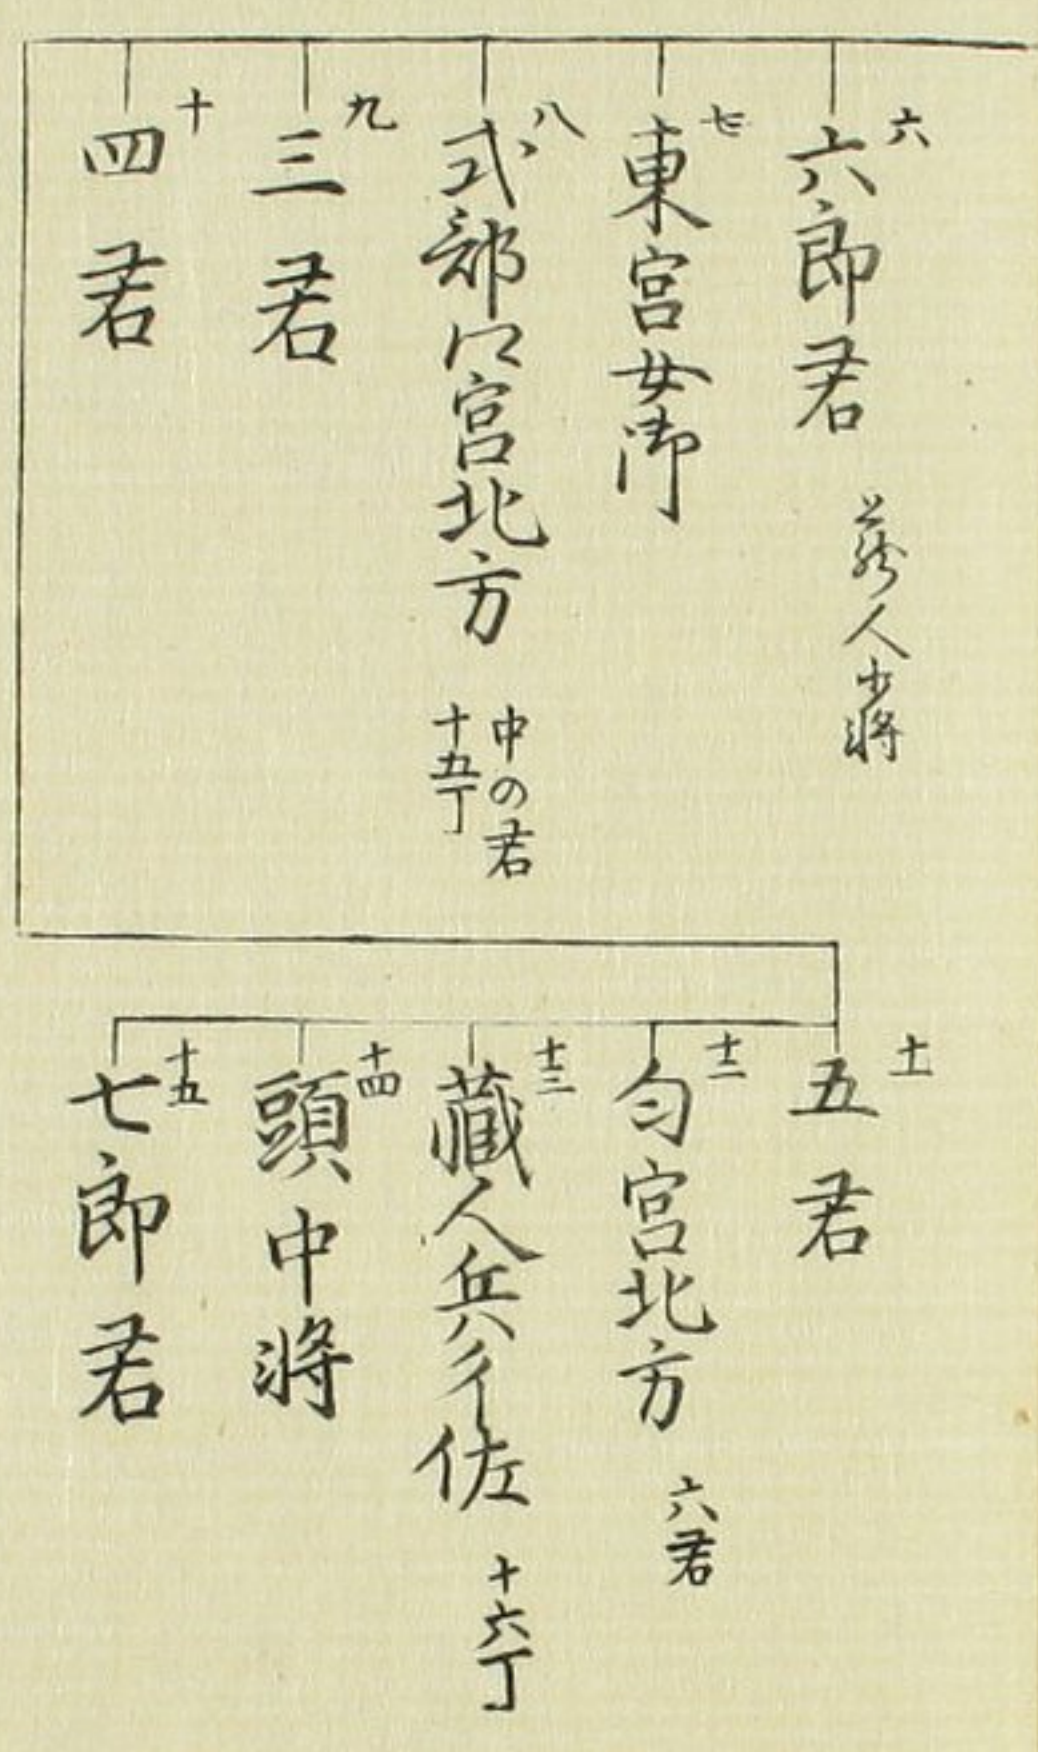 六
六郎君 蔵人少将
七
東宮女御
八
式部卿宮北方 中の君
十五丁
九
三君
十
四君
十一
五君
十二
匂宮北方 六君
十三
蔵人兵衛佐 十六丁
十四
頭中将
十五
七郎君